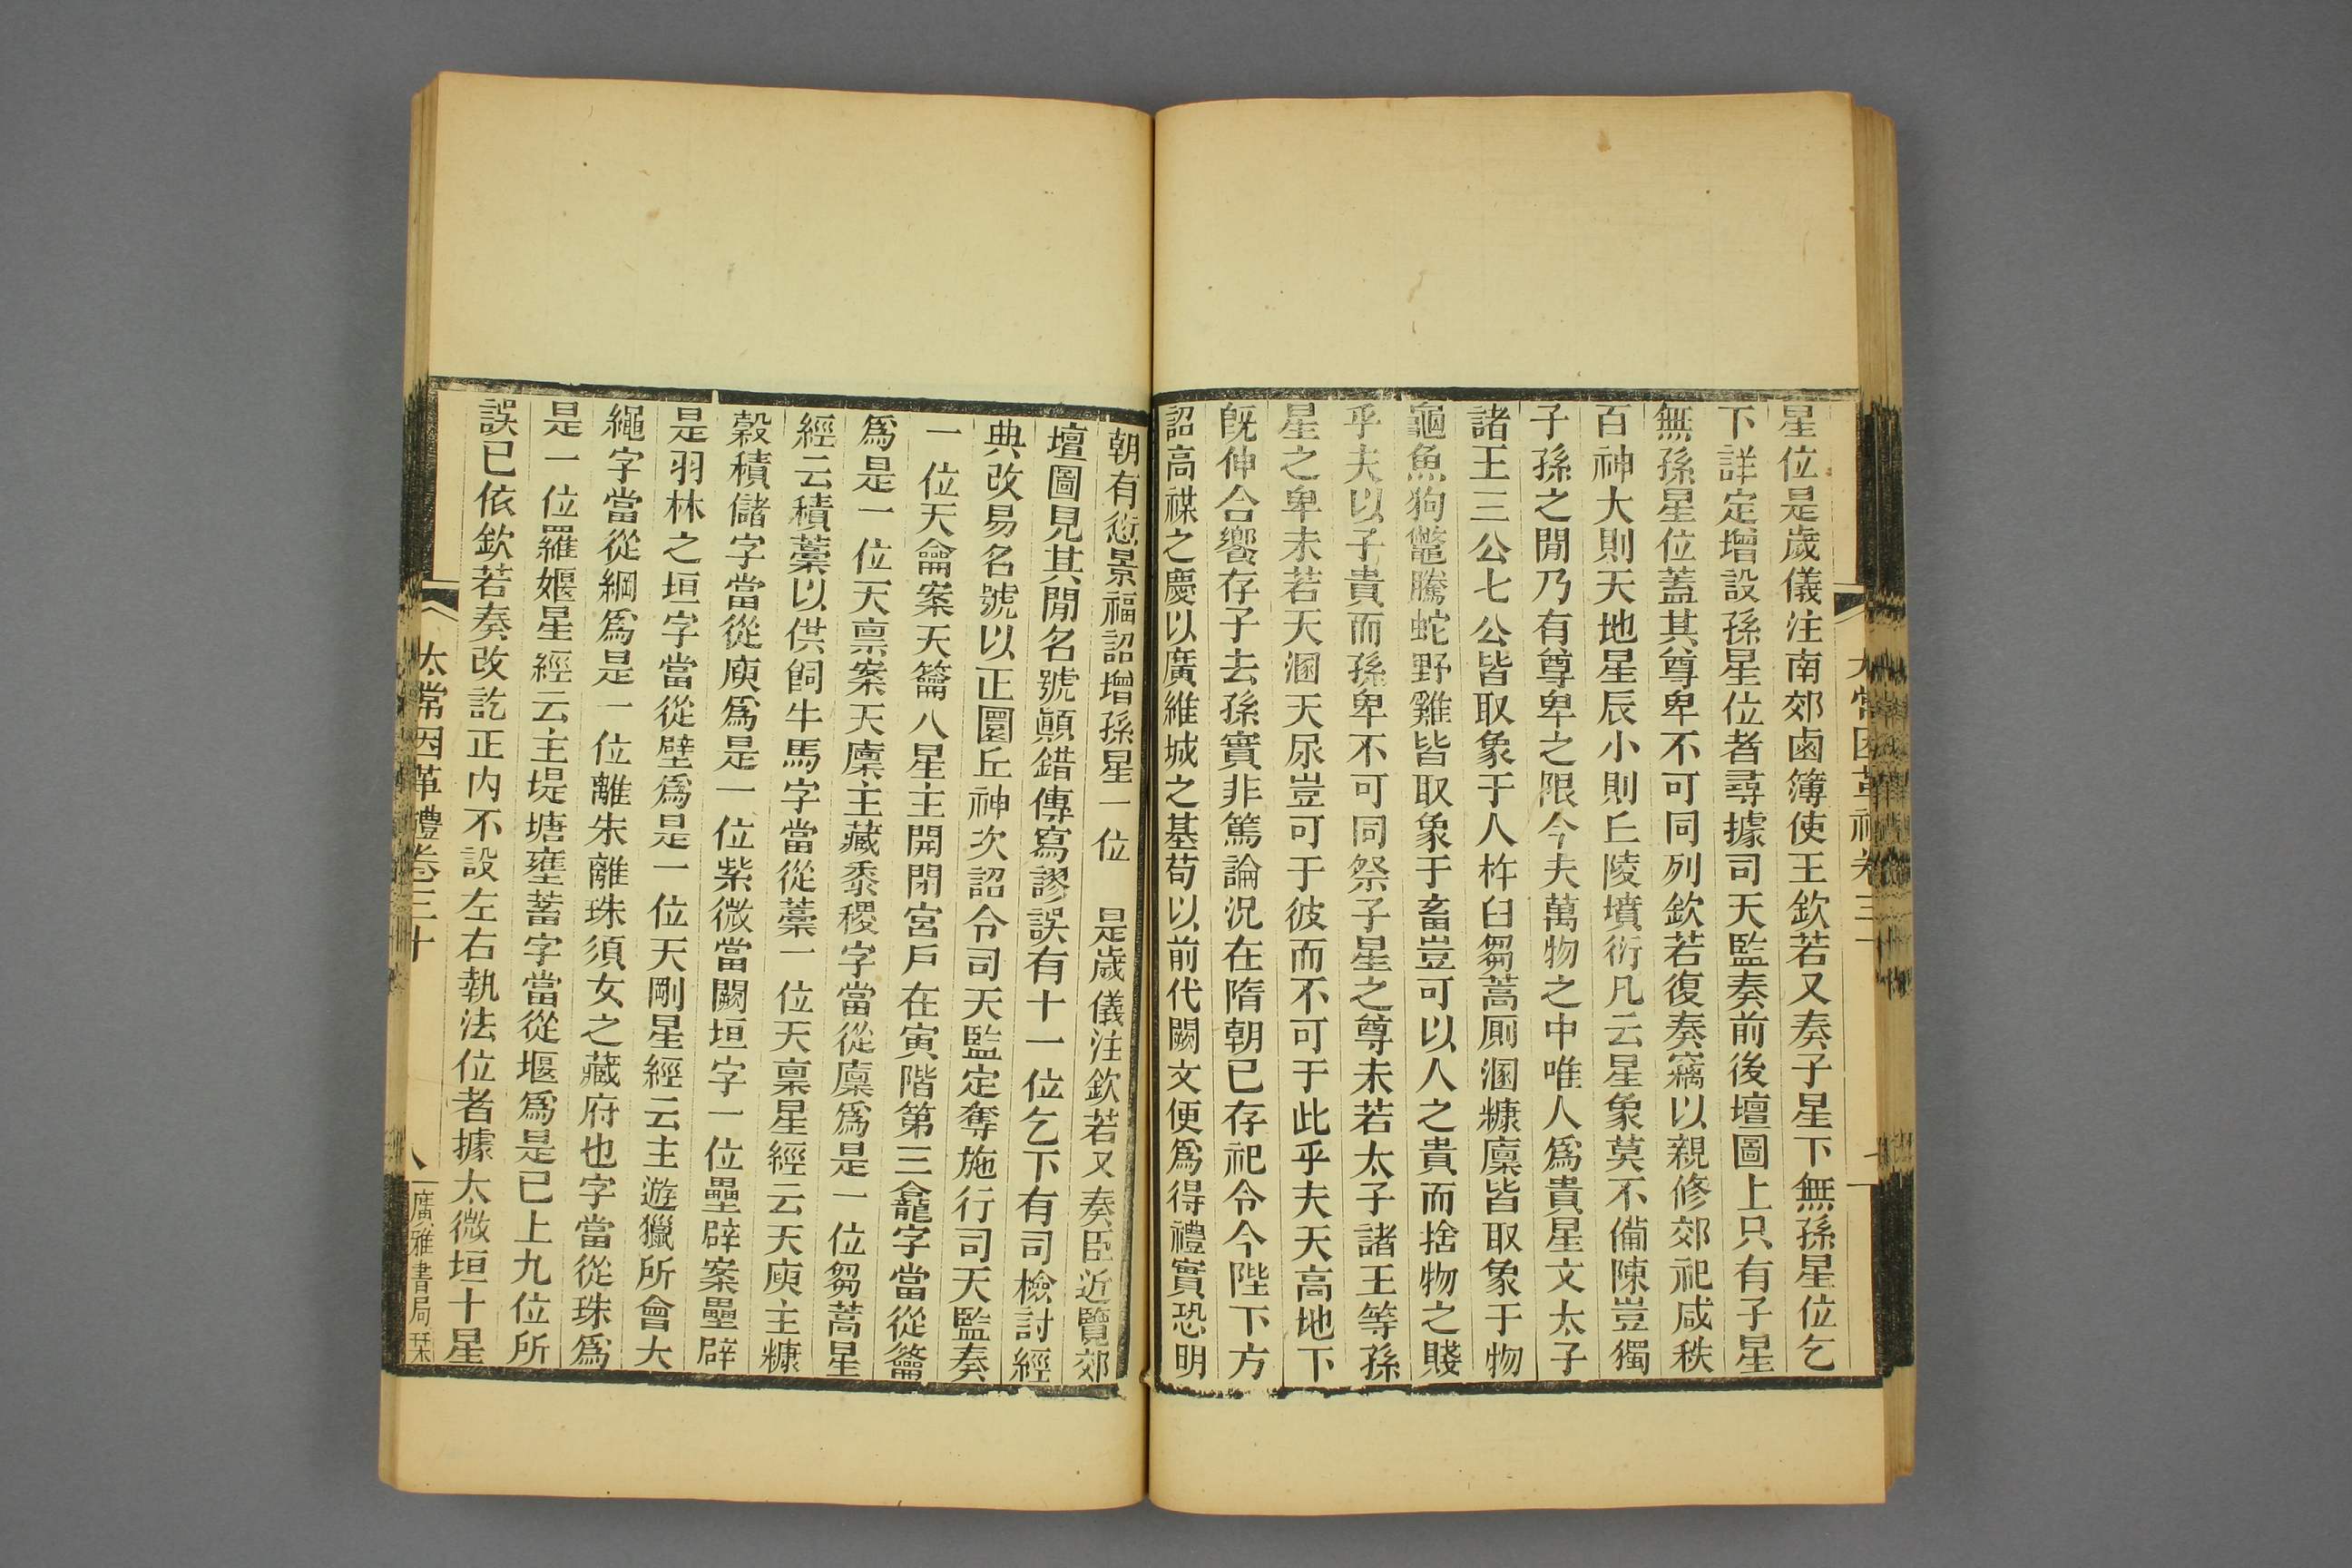 星位是歲儀注南郊鹵簿使王欽若又奏子星下無孫星位乞
下詳定增設孫星位者尋據司天監奏前後壇圖上只有子星
無孫星位蓋其尊卑不可同列欽若復奏竊以親修郊祀咸秩
百神大則天地星辰小則丘陵墳衍凡云星象莫不備陳豈獨
子孫之閒乃有尊卑之限今夫萬物之中唯人爲貴星文太子
諸王三公七公皆取象于人杵臼芻蒿厠溷糠廩皆取象于物
龜魚狗鼈騰蛇野雞皆取象于畜豈可以人之貴而捨物之賤
乎夫以子貴而孫卑不可同祭子星之尊未若太子諸王等孫
星之卑未若天溷天尿豈可于彼而不可于此乎夫天高地下
旣伸合饗存子去孫實非篤論況在隋朝已存祀令今陛下方
詔高禖之慶以廣維城之基苟以前代闕文便爲得禮實恐明
朝有愆景福詔增孫星一位　是歲儀注欽若又奏臣近覽郊
壇圖見其閒名號顚錯傳寫謬誤有十一位乞下有司檢討經
典改易名號以正圜丘神次詔令司天監定奪施行司天監奏
一位天龠案天籥八星主開閉宮戶在寅階第三龕字當從籥
爲是一位天稟案天廩主藏黍稷字當從廩爲是一位芻蒿星
經云積藁以供飼牛馬字當從藁一位天稟星經云天庾主糠
穀積儲字當從庾爲是一位紫微當闕垣字一位壘辟案壘辟
是羽林之垣字當從壁爲是一位天剛星經云主遊獵所會大
繩字當從綱爲是一位離朱離珠須女之藏府也字當從珠爲
是一位羅堰星經云主堤塘壅蓄字當從堰爲是已上九位所
誤已依欽若奏改訖正內不設左右執法位者據太微垣十星
太常因革禮卷三十
廣雅書局栞